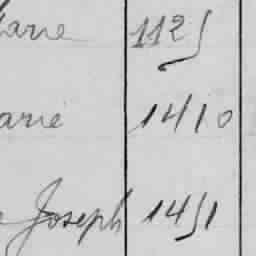 Marie 1125
Marie 1410
Joseph 1451